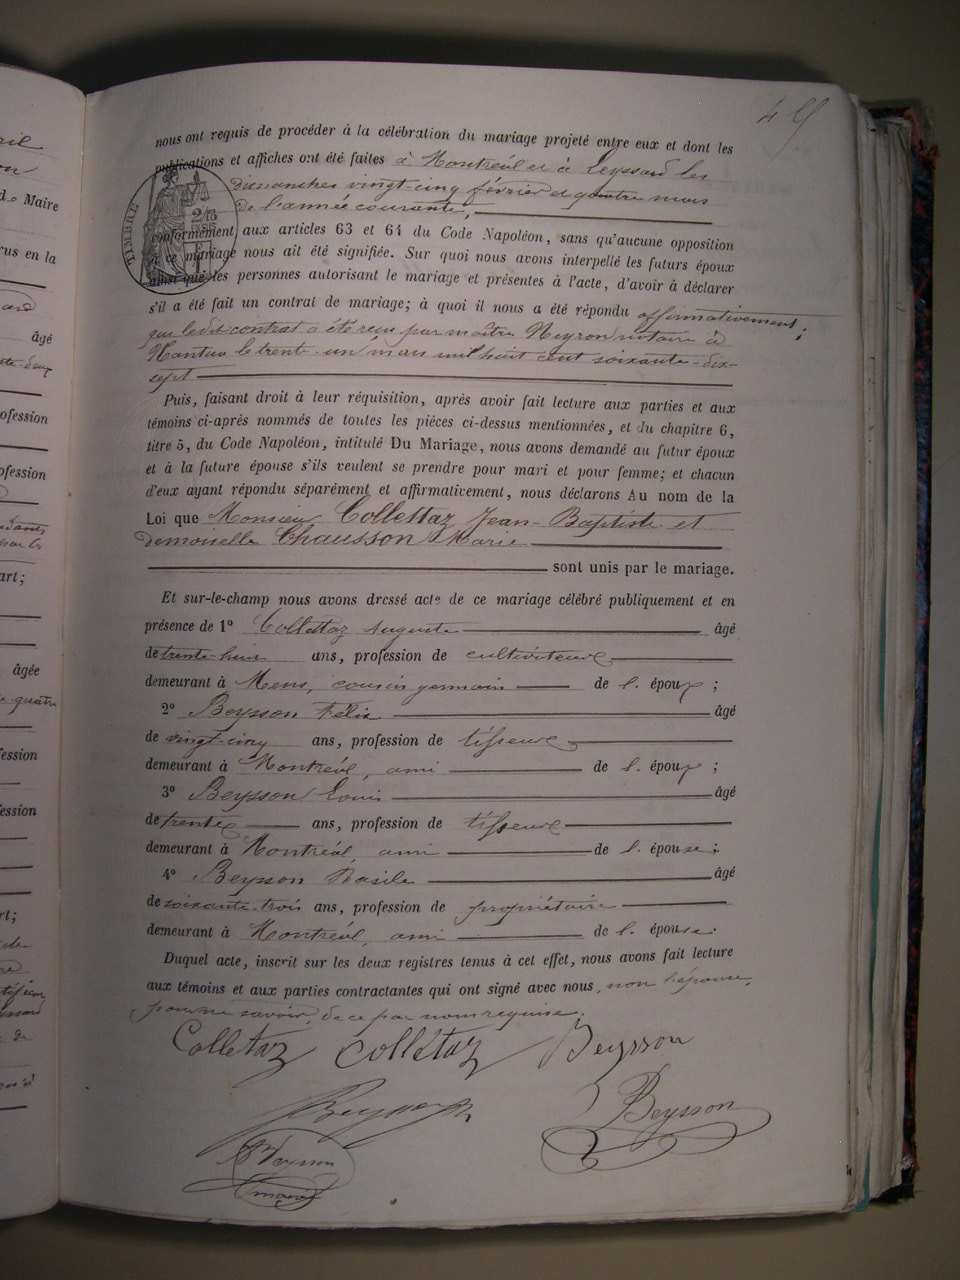 49
nous ont requis de procéder à la célébration du mariage projeté entre eux et dont les
publications et affiches ont été faites à Montréal et à Leyssard les
dimanches vingt-cinq février et quatre mars
de l'année courante,
conformément aux articles 63 et 64 du Code Napoléon, sans qu'aucune opposition
à ce mariage nous ait été signifiée. Sur quoi nous avons interpellé les futurs époux
ainsi que les personnes autorisant le mariage et présentes à l'acte, d'avoir à déclarer
s'il a été fait un contrat de mariage; à quoi il nous a été répondu affirmativement;
que ledit contrat a été reçu par maître Neyron notaire à
Nantua le trente-un mars mil huit cent soixante-dix-
sept
Puis, faisant droit à leur réquisition, après avoir fait lecture aux parties et aux
témoins ci-après nommés de toutes les pièces ci-dessus mentionnées, et du chapitre 6,
titre 5, du Code Napoléon, intitulé Du Mariage, nous avons demandé au futur époux
et à la future épouse s'ils veulent se prendre pour mari et pour femme; et chacun
d'eux ayant répondu séparément et affirmativement, nous déclarons Au nom de la
Loi que Monsieur Collettaz Jean-Baptiste et
demoiselle Chausson Marie
sont unis par le mariage.
Et sur-le-champ nous avons dressé acte de ce mariage célébré publiquement et en
présence de 1° Collettaz Auguste âgé
de trente-huit ans, profession de cultivateur
demeurant à Mens, cousin germain de l'époux;
2° Beysson Félix âgé
de vingt-cinq ans, profession de tisseur
demeurant à Montréal, ami de l'époux;
3° Beysson Louis âgé
de trente ans, profession de tisseur
demeurant à Montréal, ami de l'épouse;
4° Beysson Basile âgé
de soixante-trois ans, profession de propriétaire
demeurant à Montréal, ami de l'épouse.
Duquel acte, inscrit sur les deux registres tenus à cet effet, nous avons fait lecture
aux témoins et aux parties contractantes qui ont signé avec nous, non l'épouse,
pour ne savoir, de ce par nous requise.
Colletaz Colletaz Beysson
Beysson Beysson
TIMBRE
d.° Maire
âgé
âgée